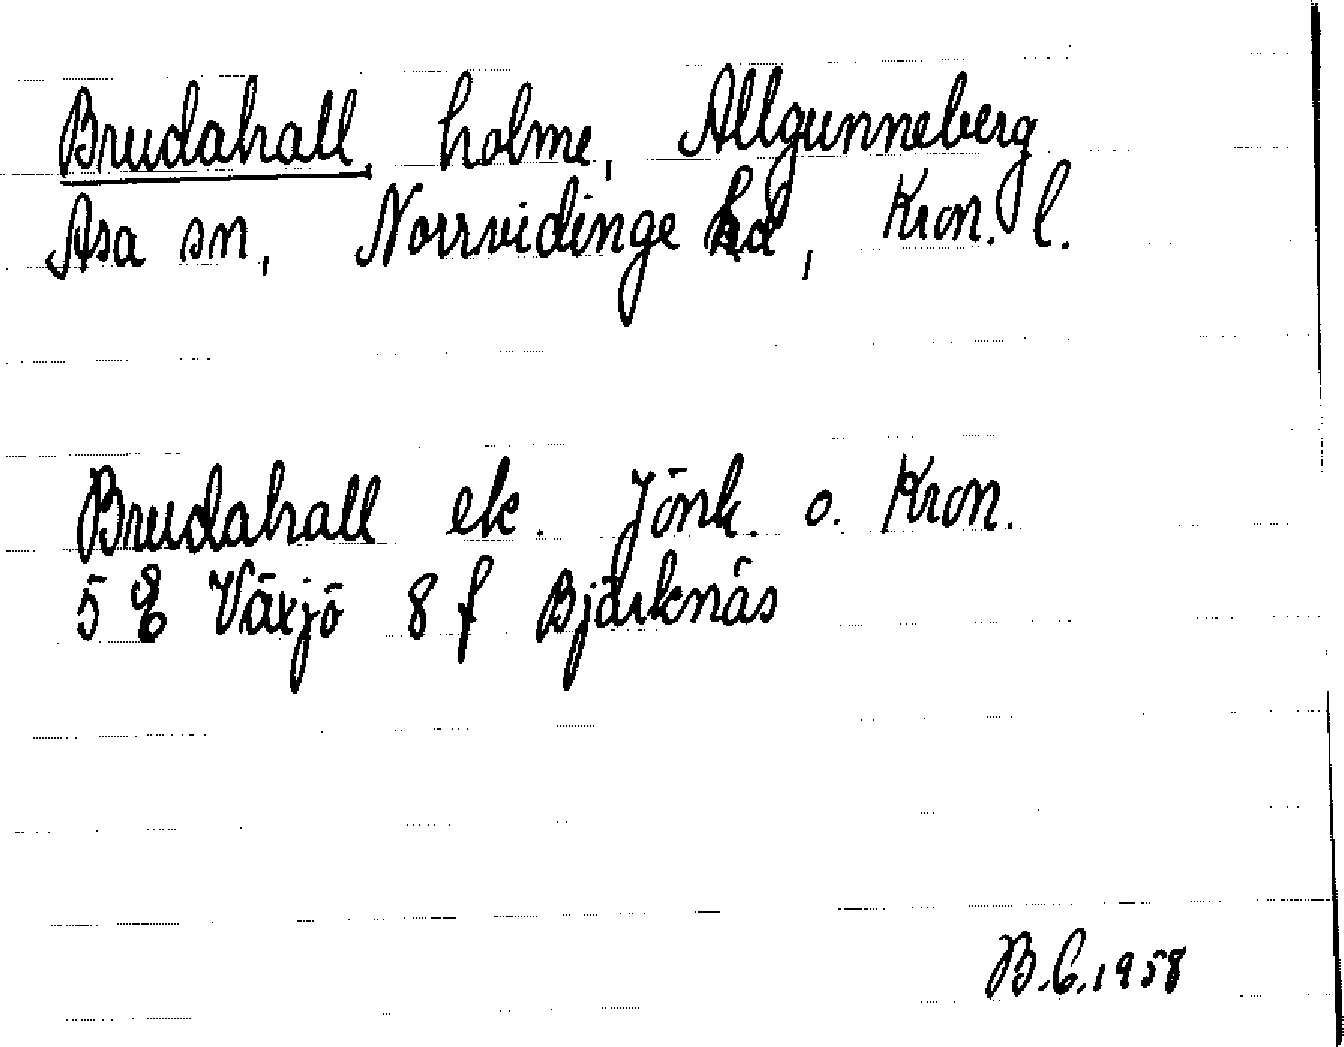 Brudahall, holme, Allgunneberg
Asa sn, Norrvidinge hd, Kron. l.
Brudahall ek. Jönk. o. Kron.
5 E Växjö 8 f Björknäs
B.C. 1958